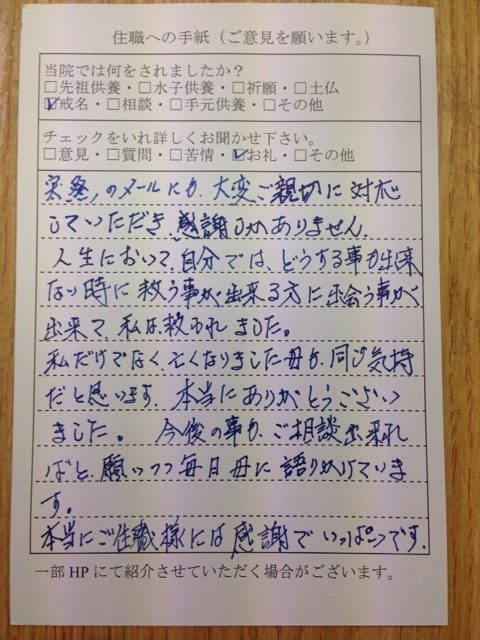 住職への手紙(ご意見を願います。)
当院では何をされましたか？
□先祖供養・□水子供養・□祈願・□土仏
☑戒名・□相談・□手元供養・□その他
チェックをいれ詳しくお聞かせ下さい。
□意見・□質問・□苦情・☑お礼・□その他
突然のメールにも、大変ご親切に対応
していただき感謝しかありません。
人生において、自分では、どうする事も出来
ない時に救う事が出来る方に出会う事が
出来て、私は救われました。
私だけでなく、亡くなりました母も、同じ気持
だと思います。本当にありがとうござい
ました。 今後の事も、ご相談出来れ
ばと、願いつつ毎日母に語りかけていま
す。
本当にご住職様には感謝でいっぱいです。
一部HPにて紹介させていただく場合がございます。